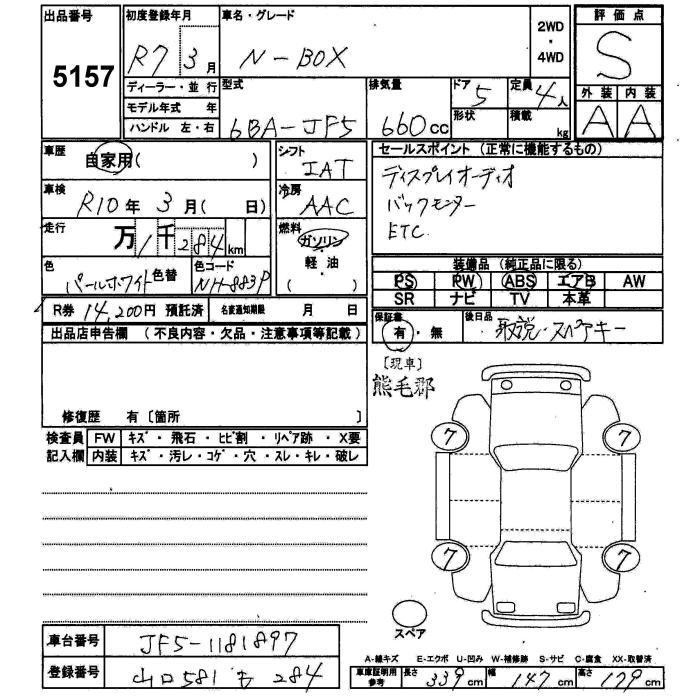 出品番号 5157
初度登録年月 R7 3月
車名・グレード N-BOX
2WD・4WD
評価点 S
外装 A 内装 A
ディーラー・並行
モデル年式 年
ハンドル 左・右
型式 6BA-JF5
排気量 660cc
ドア 5
形状
定員 4人
積載 kg
車歴 自家用( )
シフト IAT
セールスポイント (正常に機能するもの)
ディスプレイオーディオ
バックモニター
ETC
車検 R10年 3月( 日)
冷房 AAC
走行 万 1千 284 km
燃料 ガソリン・軽油・( )
色 パールホワイト 色替
色コード NH-883P
装備品 (純正品に限る)
PS PW ABS エアB AW
SR ナビ TV 本革
R券 14,200円 預託済
名変通知期限 月 日
保証書 有・無
後日品 取説・スペアキー
出品店申告欄 (不良内容・欠品・注意事項等記載)
[現車]
熊毛郡
修復歴 有 〔箇所 〕
検査員記入欄
FW キズ・飛石・ヒビ割・リペア跡・X要
内装 キズ・汚レ・コゲ・穴・スレ・キレ・破レ
7 7
7 7
スペア
車台番号 JF5-1181897
登録番号 山口581 284
A-線キズ E-エクボ U-凹み W-補修跡 S-サビ C-腐食 XX-取替済
車庫証明用参考 長さ 339cm 幅 147cm 高さ 179cm